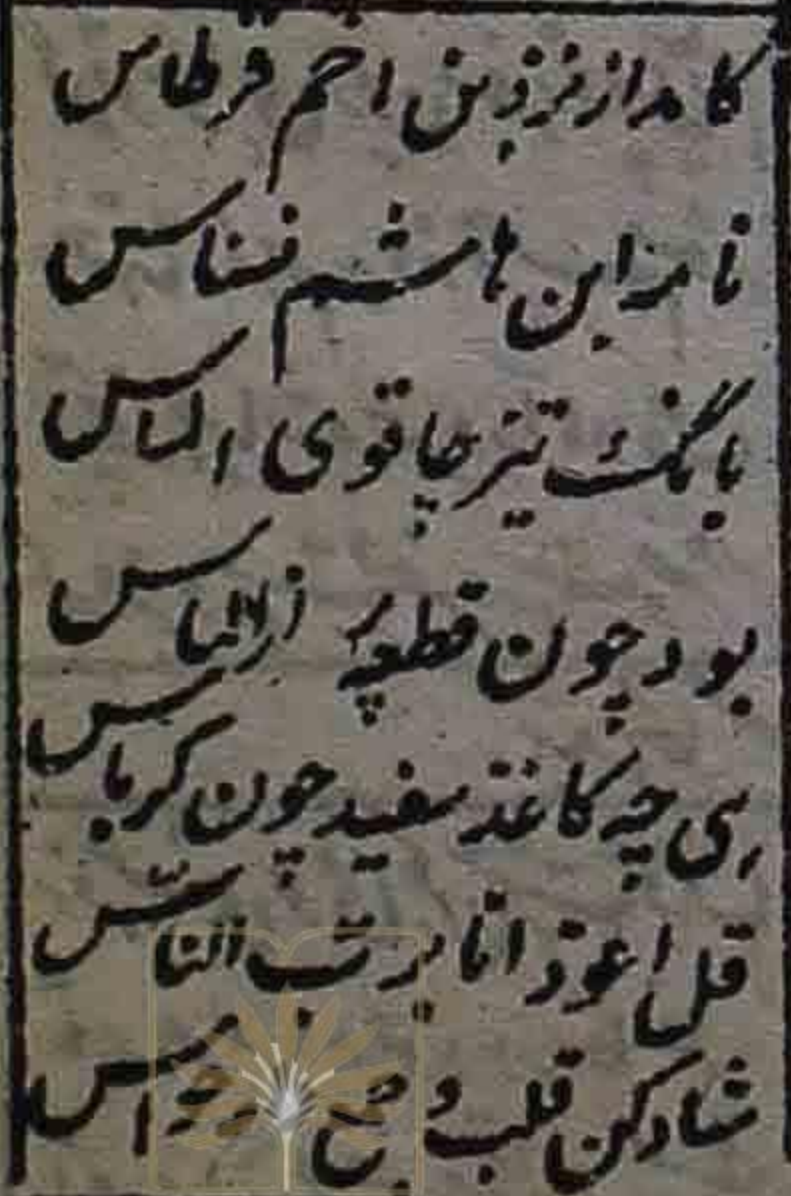 کامد از قزوین اخم قرطاس
نامد ابن هاشم نسناس
بانگ تیز چاقوی الماس
بود چون قطعهٔ از الماس
ای چه کاغذ سفید چون کرباس
قل اعوذ انا برب الناس
شاد کن قلب و